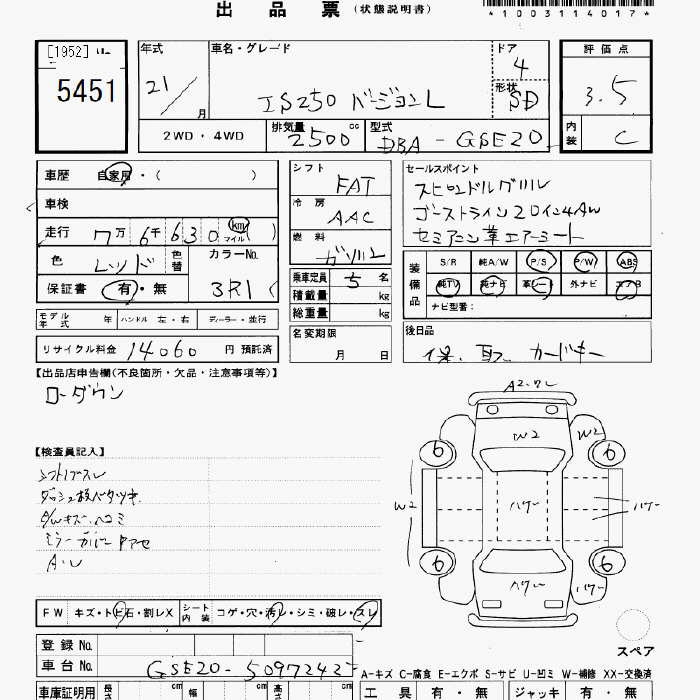 出品票 (状態説明書)
*1003114017*
[1952]
5451
年式 21/ 月
車名・グレード IS250 バージョンL
ドア 4
形状 SD
評価点 3.5
内装 C
2WD・4WD
排気量 2500 cc
型式 DBA-GSE20
車歴 自家用・( )
車検
走行 7万 6千 630 km マイル ( )
色 レッド 色替
カラーNo. 3R1 (
保証書 有・無
モデル年式 年 ハンドル 左・右 ディーラー・並行
リサイクル料金 14060 円預託済
シフト FAT
冷房 AAC
燃料 ガソリン
乗車定員 5 名
積載量 kg
総重量 kg
名変期限 月 日
セールスポイント
スピンドルグリル
ゴーストライン20インチAW
セミアニリン革エアーシート
装備品
S/R 純A/W P/S P/W ABS
純TV 純ナビ 革シート 外ナビ エアB
ナビ型番:
後日品
保、取、カードキー
【出品店申告欄(不良箇所・欠品・注意事項等)】
ローダウン
【検査員記入】
シフトノブスレ
A・レ
FW キズ・トビ石・割レX
シート内装 コゲ・穴・汚レ・シミ・破レ・スレ
登録No.
車台No. GSE20-5097242
車庫証明用 長さ cm 幅 cm 高さ cm
W2
W2
W2
ハゲレ
6
6
6
6
スペア
A-キズ C-腐食 E-エクボ S-サビ U-凹ミ W-補修 XX-交換済
工具 有・無 ジャッキ 有・無